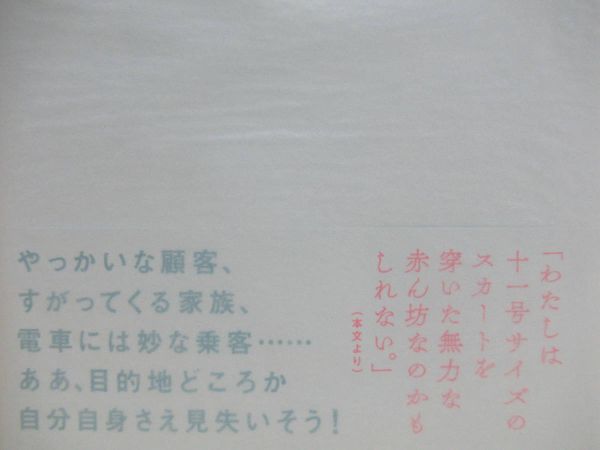 「わたしは
十一号サイズの
スカートを
穿いた無力な
赤ん坊なのかも
しれない。」
（本文より）
やっかいな顧客、
すがってくる家族、
電車には妙な乗客……
ああ、目的地どころか
自分自身さえ見失いそう！